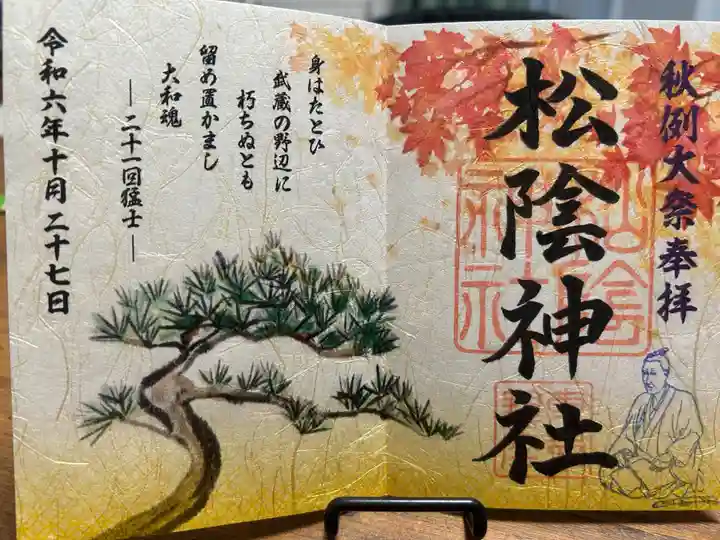 秋例大祭奉拝
松陰神社
身はたとひ
武蔵の野辺に
朽ちぬとも
留め置かまし
大和魂
―二十一回猛士―
令和六年十月二十七日